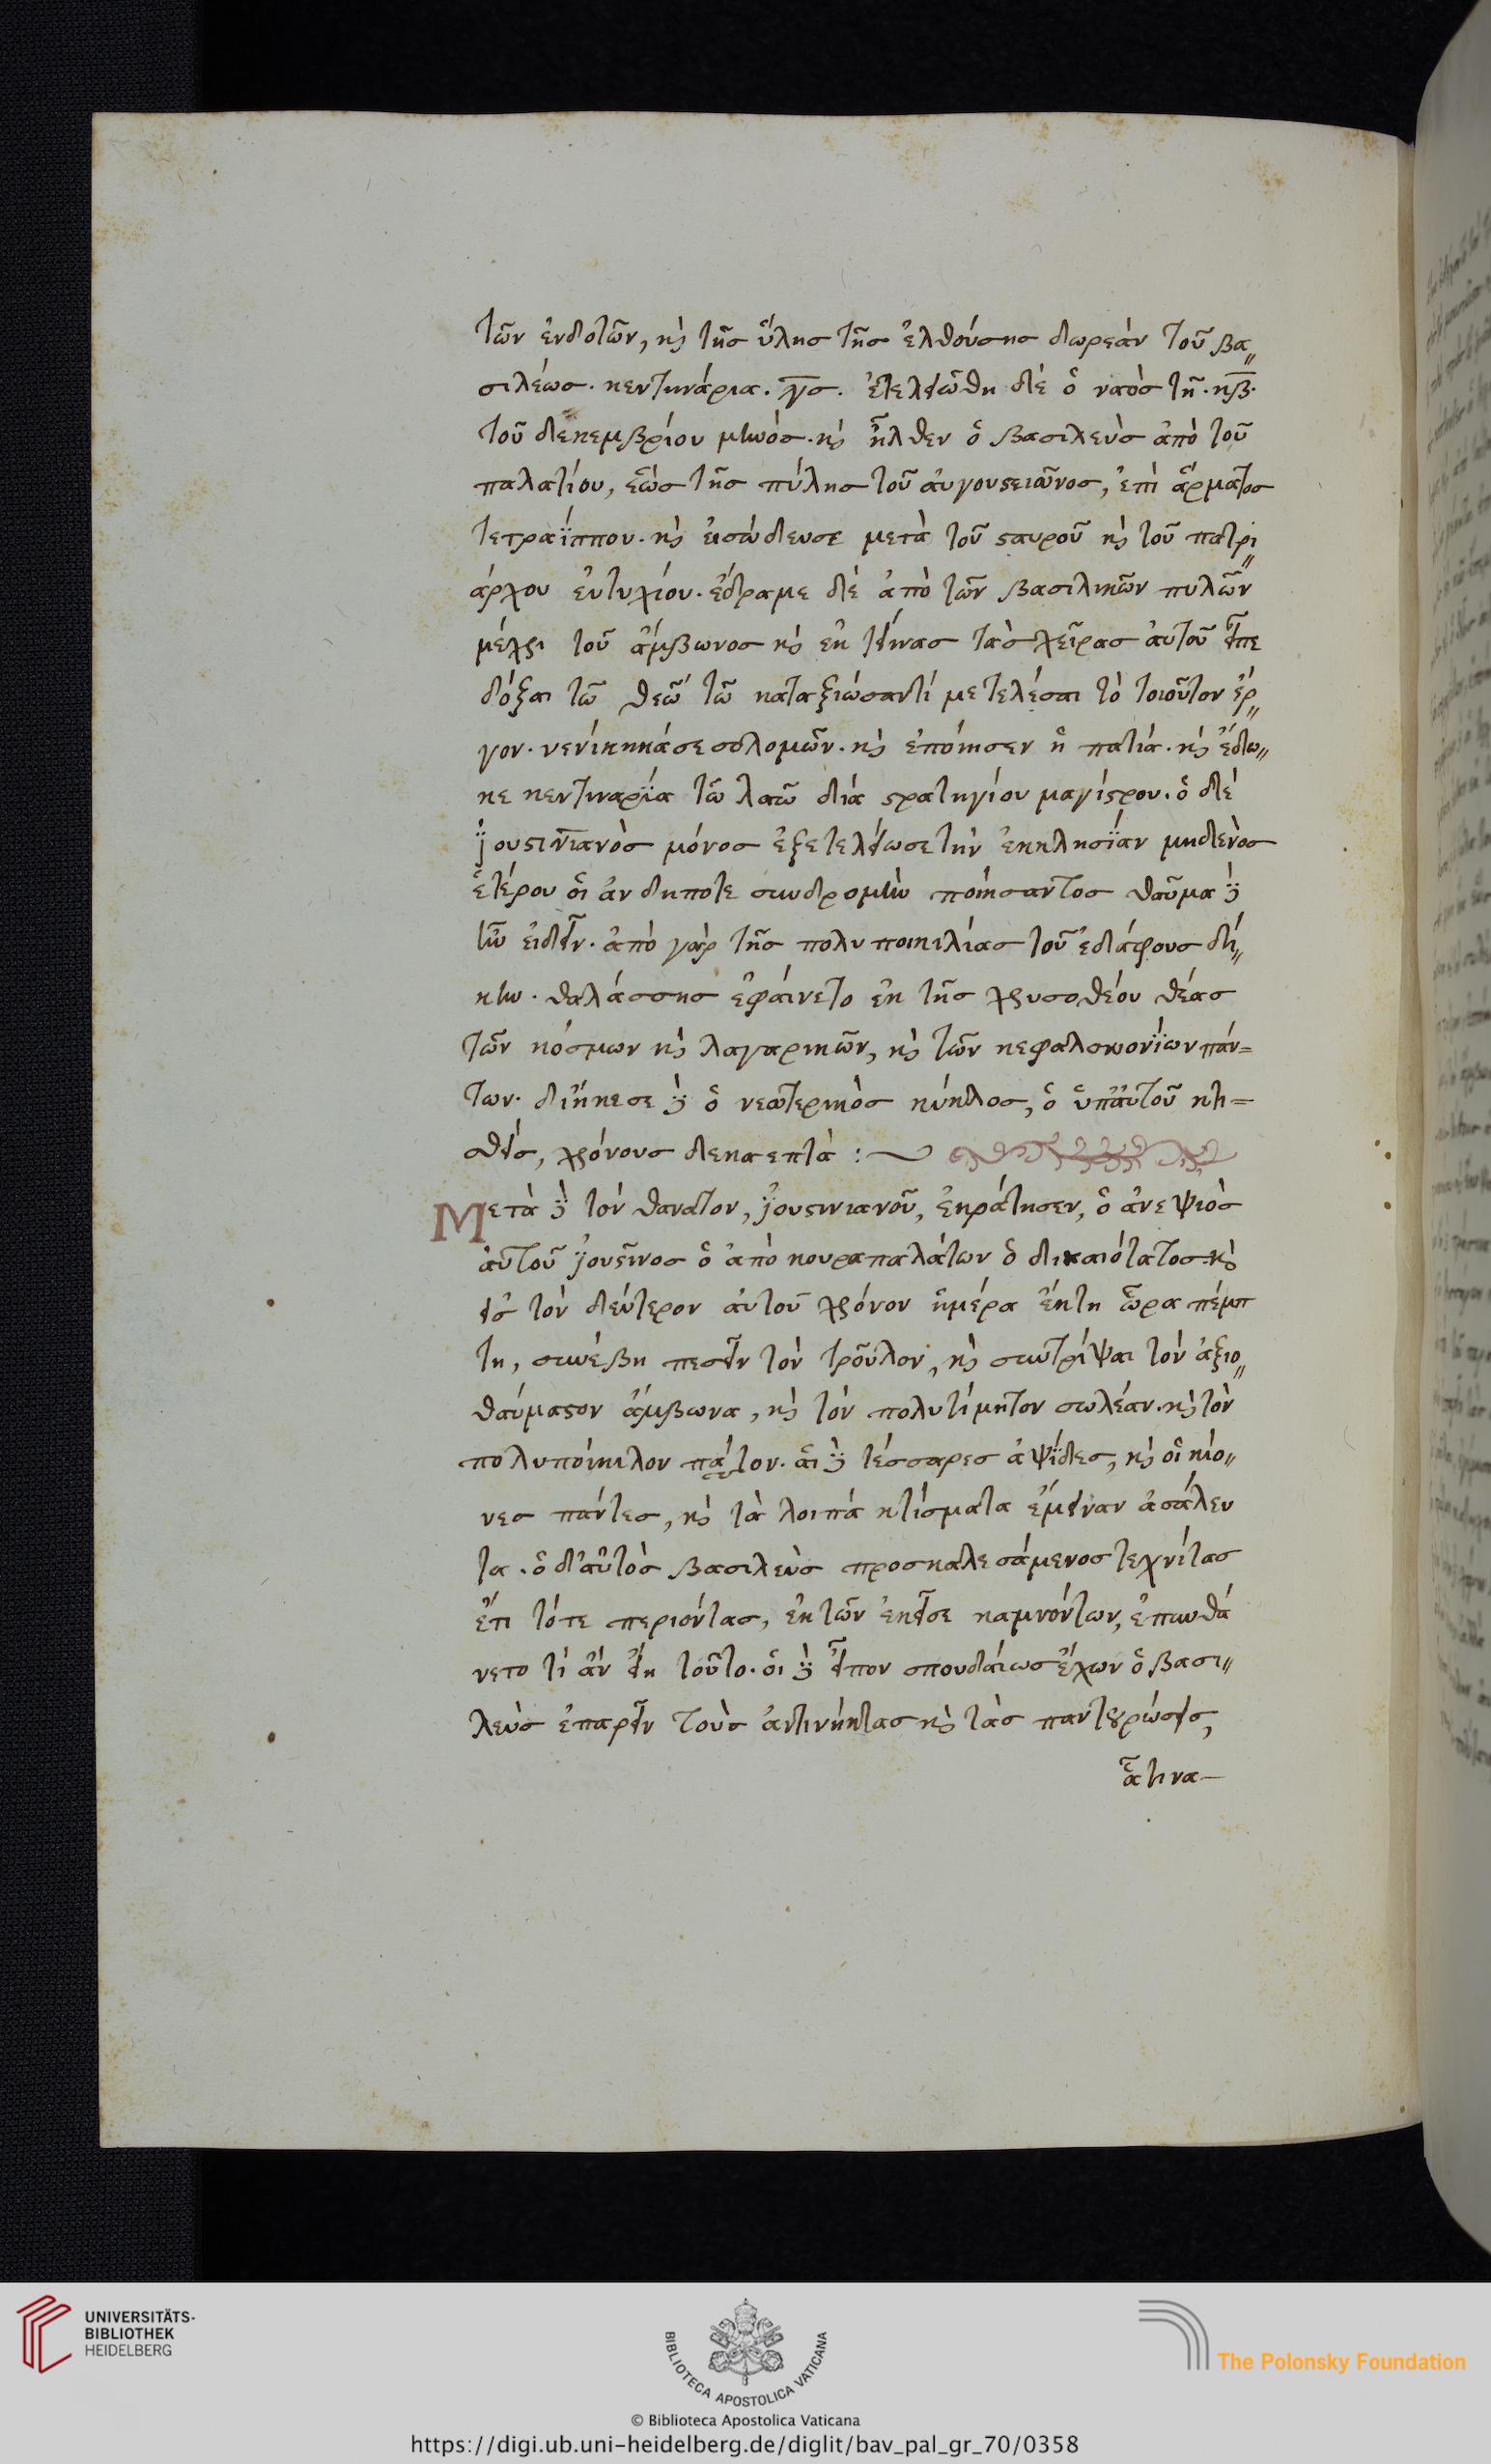 τῶν ἐνδοτῶν, κ̀ς τῆς ὕλης τῆς ἐλθούσης δωρεὰν τοῦ βα
σιλέως. κεντηνάρια. γς. ἐτελειώθη δὲ ὁ ναὸς τῆ. κβ.
τοῦ δεκεμβρίου μηνός. κ̀ς ἦλθεν ὁ βασιλεὺς ἀπὸ τοῦ
παλατίου, ἕως τῆς πύλης τοῦ ἀυγουστειῶνος, ἐπὶ ἅρματος
τετραΐππου. κ̀ς εἰσώδευσε μετὰ τοῦ σταυροῦ κ̀ς τοῦ πατρι
άρχου ἐυτυχίου. ἔδραμε δὲ ἀπὸ τῶν βασιλικῶν πυλῶν
μέχρι τοῦ ἄμβωνος κ̀ς ἐκ τείνας τὰς χεῖρας ἀυτοῦ εἶπε
δόξαι τῶ θεῶ τῶ καταξιώσαντί με τελέσαι τὸ τοιοῦτον ἔρ
γον. νενίκηκά σε σολομῶν. κ̀ς ἐποίησεν ἡ πατιά. κ̀ς ἔδω
κε κεντιναρία τῶ λαῶ διὰ στρατηγίου μαγίστρου. ὁ δὲ
ἰουστινιανὸς μόνος ἐξετελείωσε τὴν ἐκκλησίαν μηδενὸς
ἑτέρου οἱ ἀν δηποτε συνδρομὴν ποιήσαντος θαῦμα δ̀
ἦν ἰδεῖν. ἀπὸ γὰρ τῆς πολυ ποικιλίας τοῦ ἐδάφους δί
κην. θαλάσσης ἐφαίνετο ἐκ τῆς χρυσοθέου θέας
τῶν κόσμων κ̀ς λαγαρικῶν, κ̀ς τῶν κεφαλοκιονίων πάν
των. διήκεσε δ̀ ὁ νεωτερικὸς κύκλος, ὁ ὑπ' ἀυτοῦ κτι
σθεὶς, χρόνους δεκαεπτά :
Μετὰ δ̀ τὸν θανατον, ἰουστινιανοῦ, ἐκράτησεν, ὁ ἀνεψιὸς
ἀυτοῦ ἰουστῖνος ὁ ἀπὸ κουραπαλάτων ὁ δικαιότατος. κ̀ς
εἰς τὸν δεύτερον ἀυτοῦ χρόνον ἡμέρα ἕκτη ὥρα πέμπ
τη, συνέβη πεσεῖν τὸν τροῦλον, κ̀ς συντρίψαι τὸν ἀξιο
θαύμαστον ἄμβωνα, κ̀ς τὸν πολυτίμητον σωλέαν. κ̀ς τὸν
πολυποίκιλον πάτον. ἁι δ̀ τέσσαρες ἀψίδες, κ̀ς οἱ κίο
νες πάντες, κ̀ς τὰ λοιπὰ κτίσματα ἔμειναν ἀσάλευ
τα. ὁ δ' ἀυτὸς βασιλεὺς προσκαλεσάμενος τεχνίτας
ἔτι τότε περιόντας, ἐκ τῶν ἐκεῖσε καμνόντων, ἐπυνθά
νετο τί ἂν εἴη τοῦτο. ὁι δ̀ εἶπον σπουδαίως ἔχων ὁ βασι
λεὺς ἐπαρεῖν τοὺς ἀντινήκτας κ̀ς τὰς παντουρώσεις,
ἅτινα
UNIVERSITÄTS-
BIBLIOTHEK
HEIDELBERG
BIBLIOTECA APOSTOLICA VATICANA
The Polonsky Foundation
© Biblioteca Apostolica Vaticana
https://digi.ub.uni-heidelberg.de/diglit/bav_pal_gr_70/0358